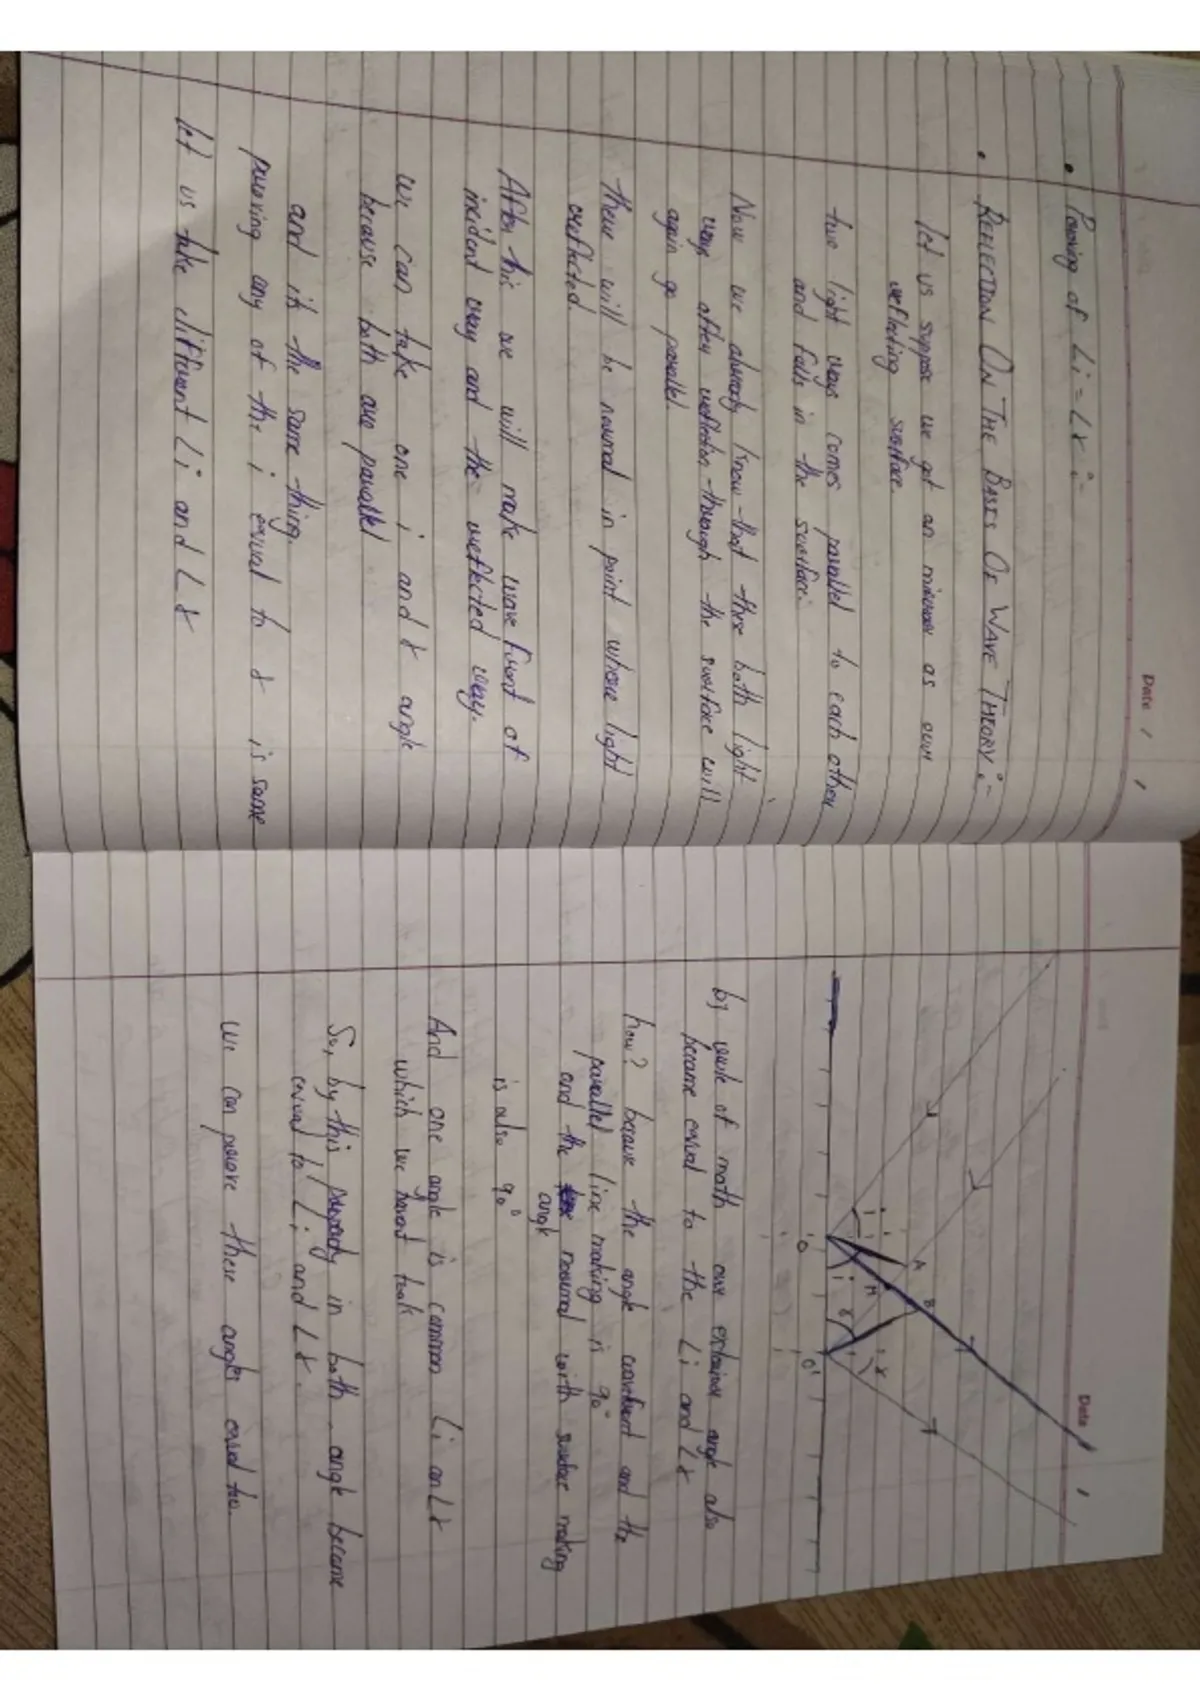 Date / /
• Proving of ∠i = ∠r :-
• REFLECTION ON THE BASES OF WAVE THEORY :-
let us suppose we got an mirror as our
reflecting surface.
two light rays comes parallel to each other
and falls in the surface.
Now we already know that these both light
rays after reflection through the surface will
again go parallel.
there will be normal in point where light
reflected.
After this we will make wave front of
incident ray and the reflected ray.
we can take one i and r angle
because both are parallel
and it the same thing.
proving any of the i equal to r is same
let us take different ∠i and ∠r
Date /
A
B
M
i
i
r
r
O
O'
by rule of math our exterior angle also
become equal to the ∠i and ∠r
how? because the angle wavefront and the
parallel line making is 90°
and the normal with surface making
angle
is also 90°
And one angle is common ∠i or ∠r
which we havent took
So, by this property in both angle become
equal to ∠i and ∠r.
we can prove these angles equal too.